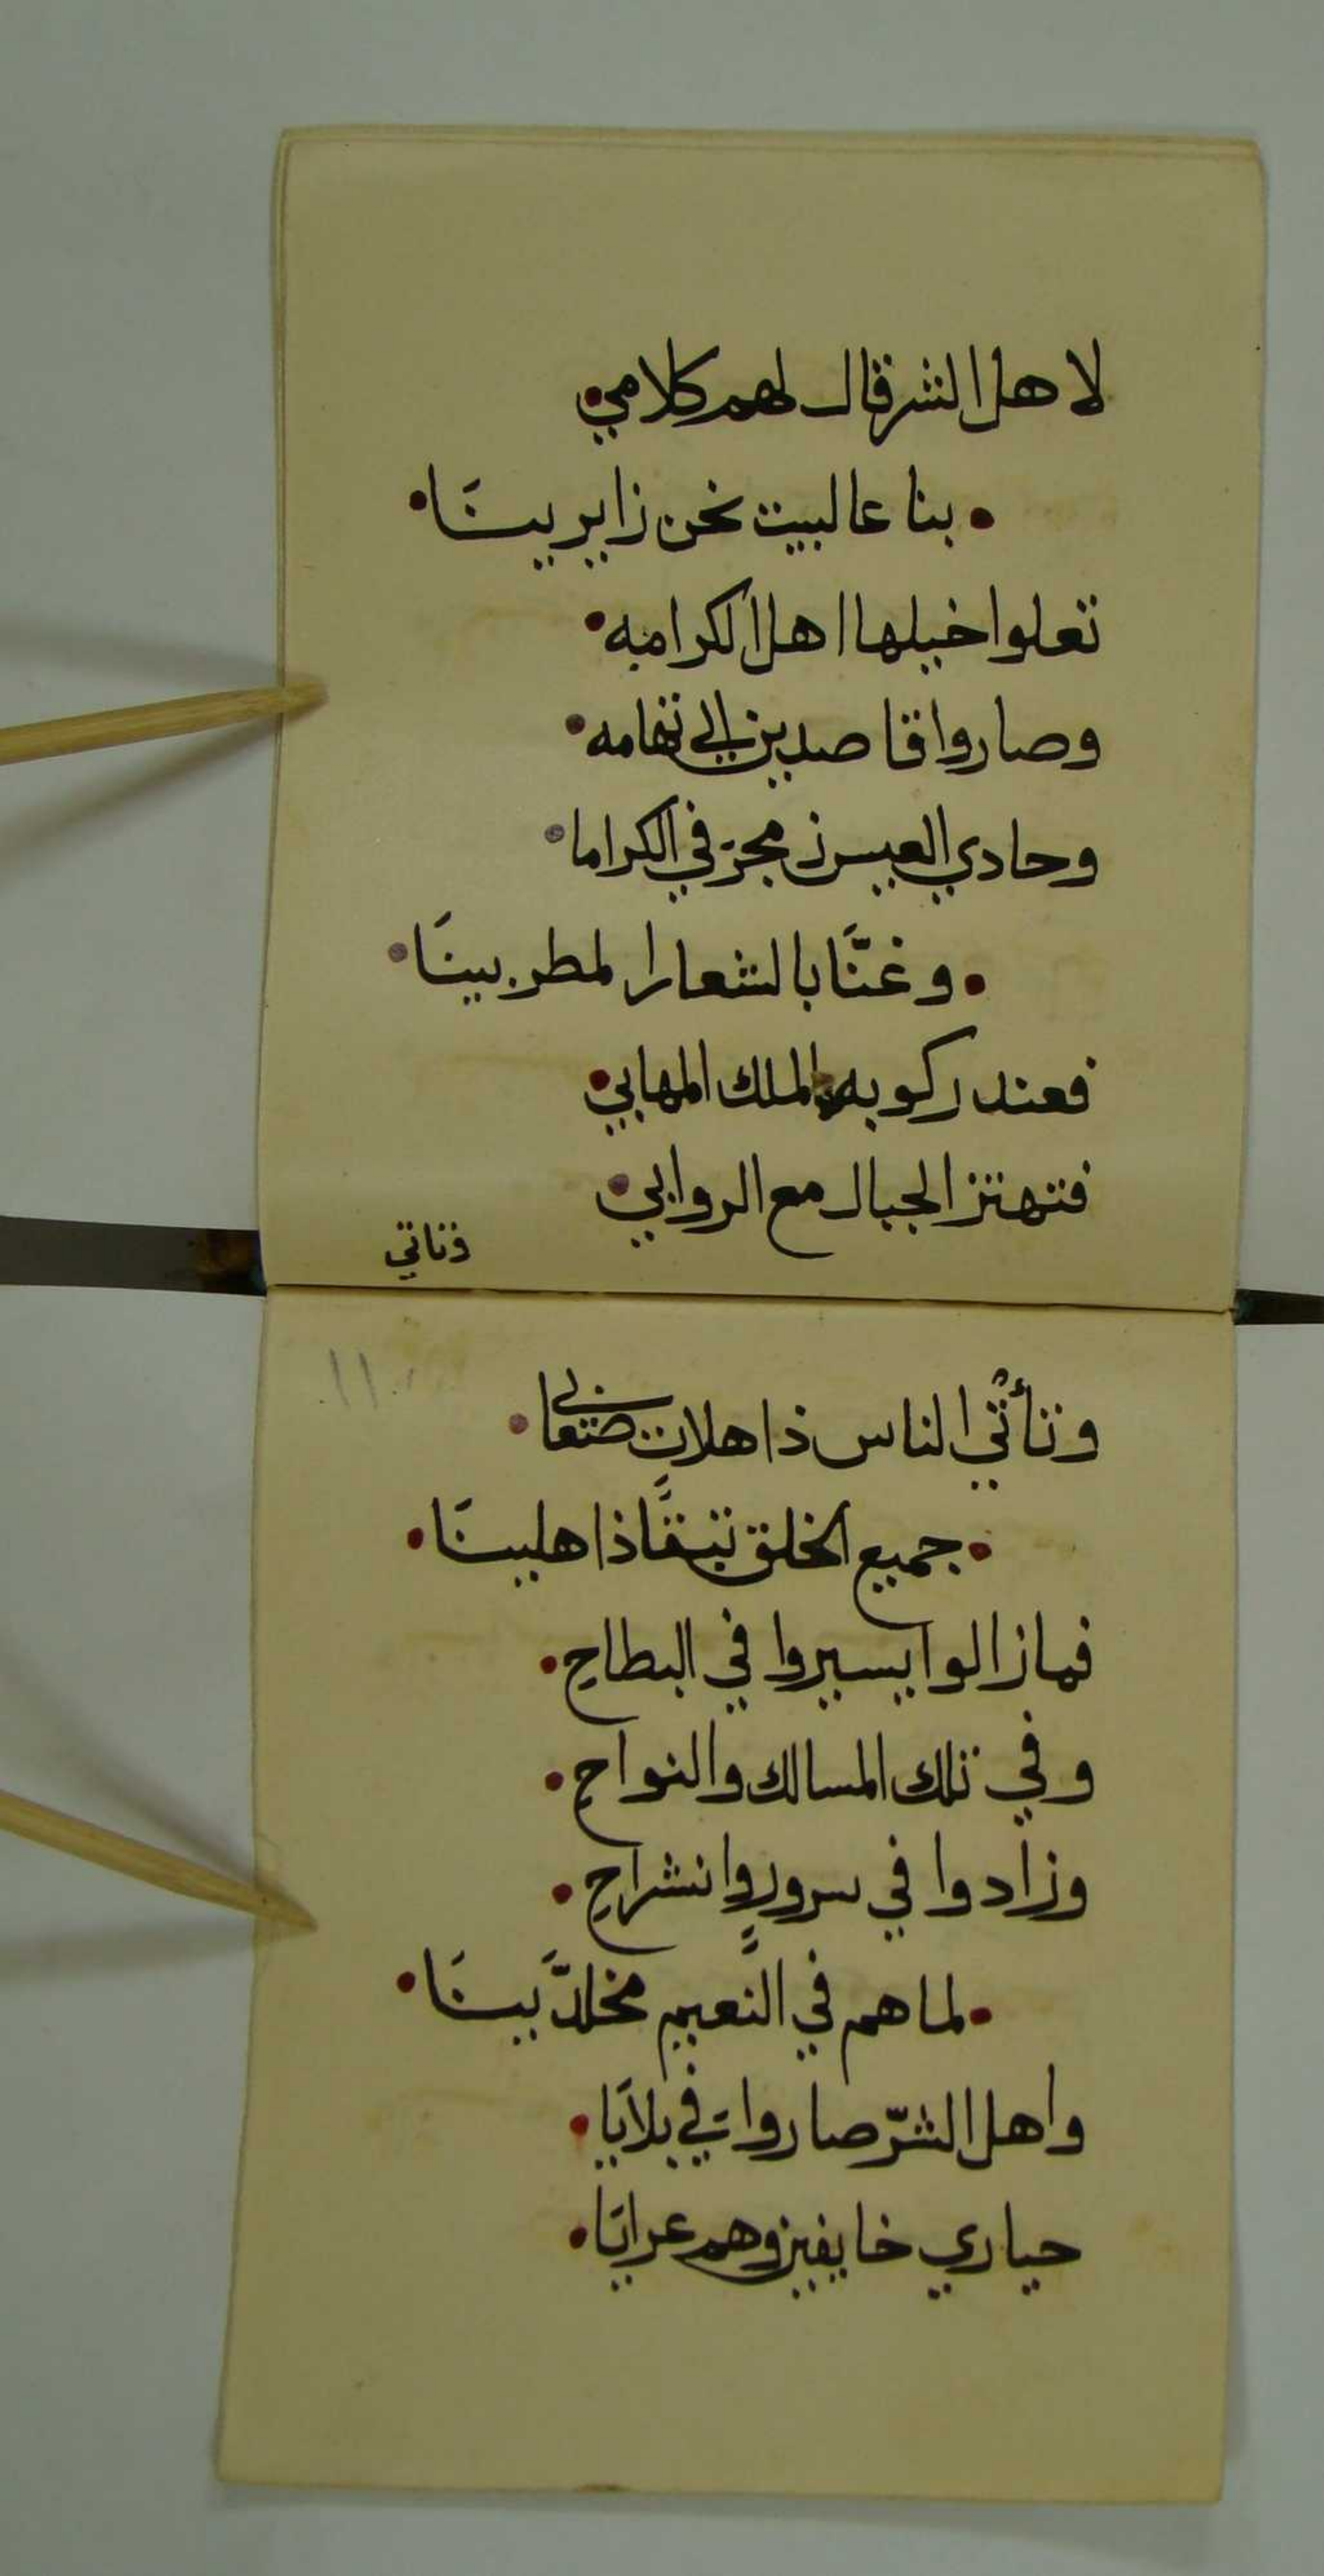 لاهل الشر قال لهم كلامي
بنا عالبيت نحن زايرينَا
تعلوا خيلها اهل الكراميه
وصاروا قاصدين الي تهامه
وحادي العيس زمجرَ في الكراما
وغنَّا بالشعار المطربينَا
فعند ركوبه الملك المهابي
فتهتز الجبال مع الروابي
وتاتي
١١
وتأتي الناس ذاهلات
جميع الخلق تبقَا ذاهلينَا
فمازالوا يسيروا في البطاح
وفي تلك المسالك والنواح
وزادوا في سرورٍ وانشراح
لما هم في النَعيم مخلدَّينَا
واهل الشرّ صاروا في بلايَا
حياري خايفين وهم عرايَا